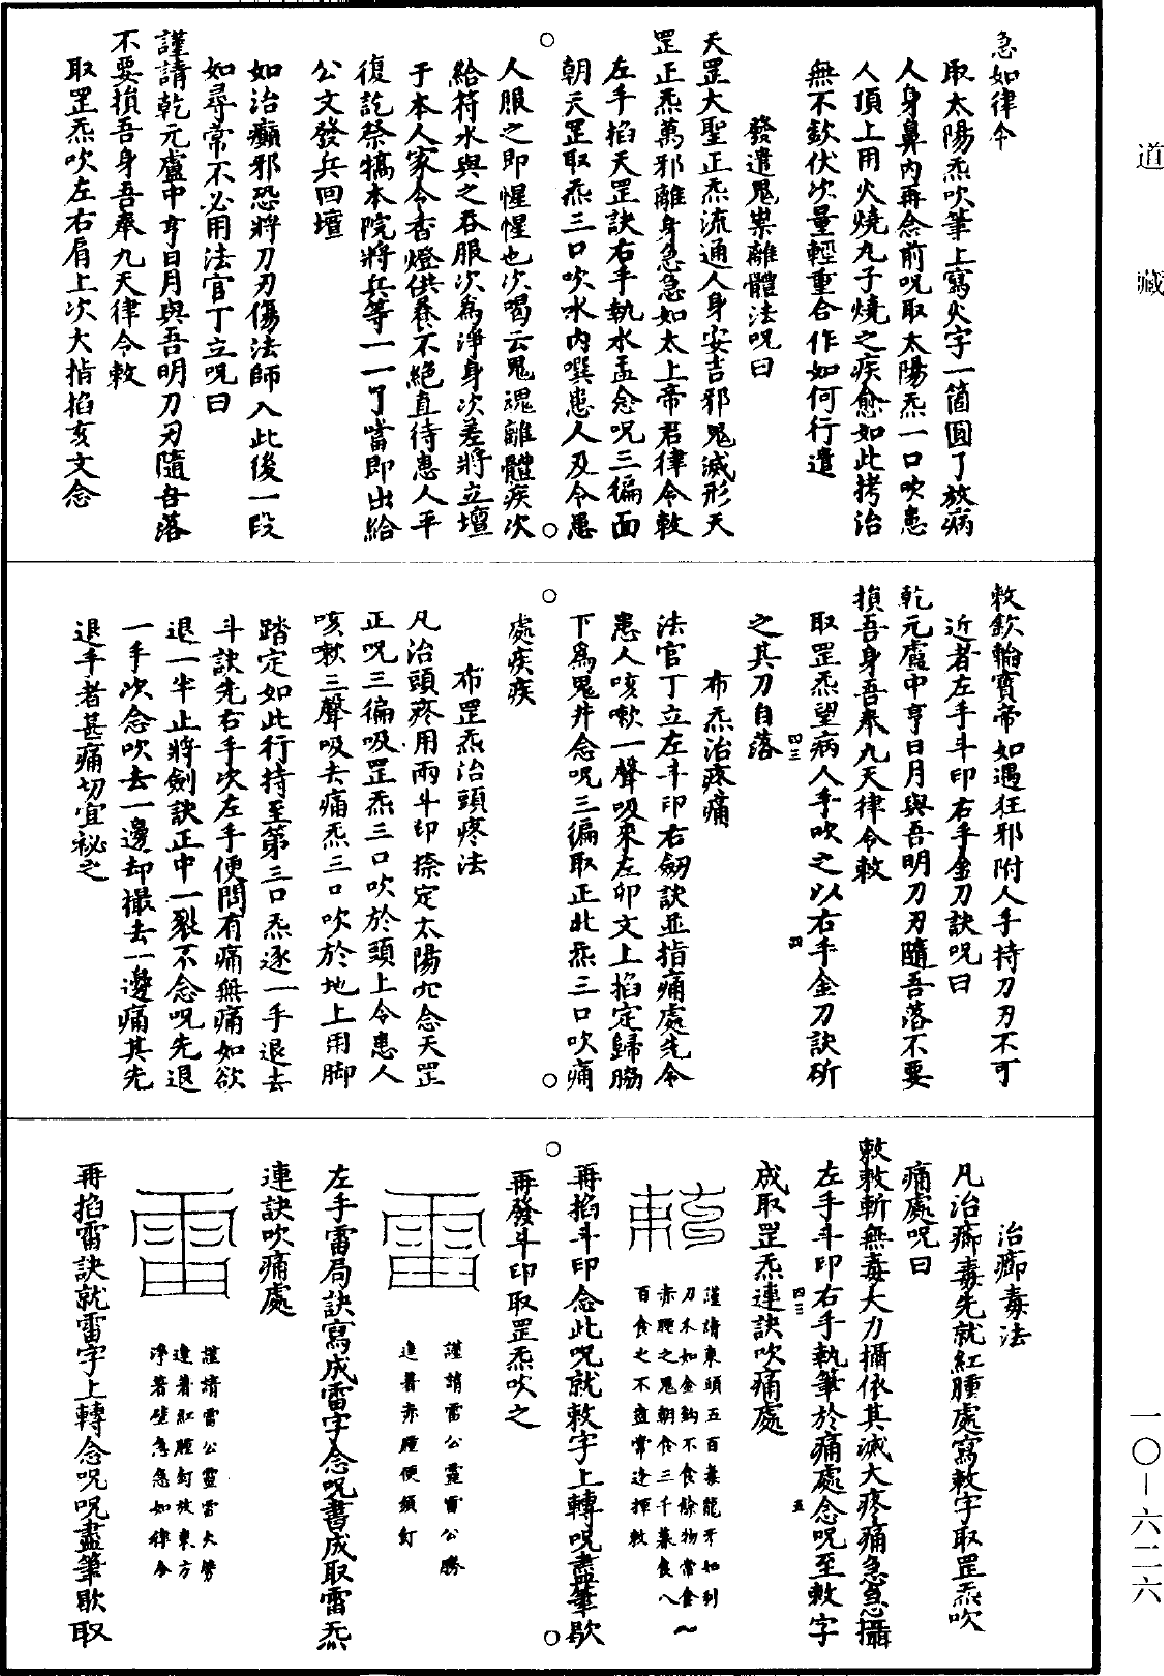 道藏
急如律令
取太陽炁吹筆上寫火字一箇圓了放病
人身鼻內再念前呪取太陽炁一口吹患
人頂上用火燒九子燒之疾愈如此拷治
無不欽伏次量輕重合作如何行遣
發遣鬼祟離體法呪曰
天罡大聖正炁流通人身安吉邪鬼滅形天
罡正炁萬邪離身急急如太上帝君律令敕
左手掐天罡訣右手執水盂念呪三徧面
朝天罡取炁三口吹水內噀患人及令患
人服之即惺惺也次喝云鬼魂離體疾次
給符水與之吞服次為淨身次差將立壇
于本人家令香燈供養不絕直待患人平
復訖祭犒本院將兵等一一了當即出給
公文發兵回壇
如治癲邪恐將刀刃傷法師入此後一段
如尋常不必用法官丁立呪曰
謹請乾元廬中亨日月與吾明刀刃隨吾落
不要損吾身吾奉九天律令敕
取罡炁吹左右肩上次大指掐亥文念
敕欽輪寶帝如遇狂邪附人手持刀刃不可
近者左手斗印右手金刀訣呪曰
乾元廬中亨日月與吾明刀刃隨吾落不要
損吾身吾奉九天律令敕
取罡炁望病人手吹之以右手金刀訣斫
之其刀自落
布炁治疼痛
法官丁立左手斗印右劒訣並指痛處先令
患人咳嗽一聲吸來左卯文上掐定歸腸
下為鬼井念呪三徧取正北炁三口吹痛
處疾疾
布罡炁治頭疼法
凡治頭疼用兩斗印捺定太陽穴念天罡
正呪三徧吸罡炁三口吹於頭上令患人
咳嗽三聲吸去痛炁三口吹於地上用脚
踏定如此行持至第三口炁逐一手退去
斗訣先右手次左手便問有痛無痛如欲
退一半止將劍訣正中一裂不念呪先退
一手次念吹去一邊却撮去一邊痛其先
退手者甚痛切宜祕之
治癤毒法
凡治癤毒先就紅腫處寫敕字取罡炁吹
痛處呪曰
敕敕斬無毒大力攝依其滅大疼痛急急攝
左手斗印右手執筆於痛處念呪至敕字
成取罡炁連訣吹痛處
敕
謹請東頭五百毒龍牙如利
刀禾如金鈎不食餘物常食
赤腫之鬼朝食三千暮食八
百食之不盡常逢揮敕
再掐斗印念此呪就敕字上轉呪盡筆歇
再發斗印取罡炁吹之
雷
謹請雷公霹靂雷公勝
進著赤腫便須釘
左手雷局訣寫成雷字念呪書成取雷炁
連訣吹痛處
雷
謹請雷公靈雷大勞
逢著紅腫釘枝東方
淨著壁急急如律令
再掐雷訣就雷字上轉念呪呪盡筆歇取
一〇—六二六